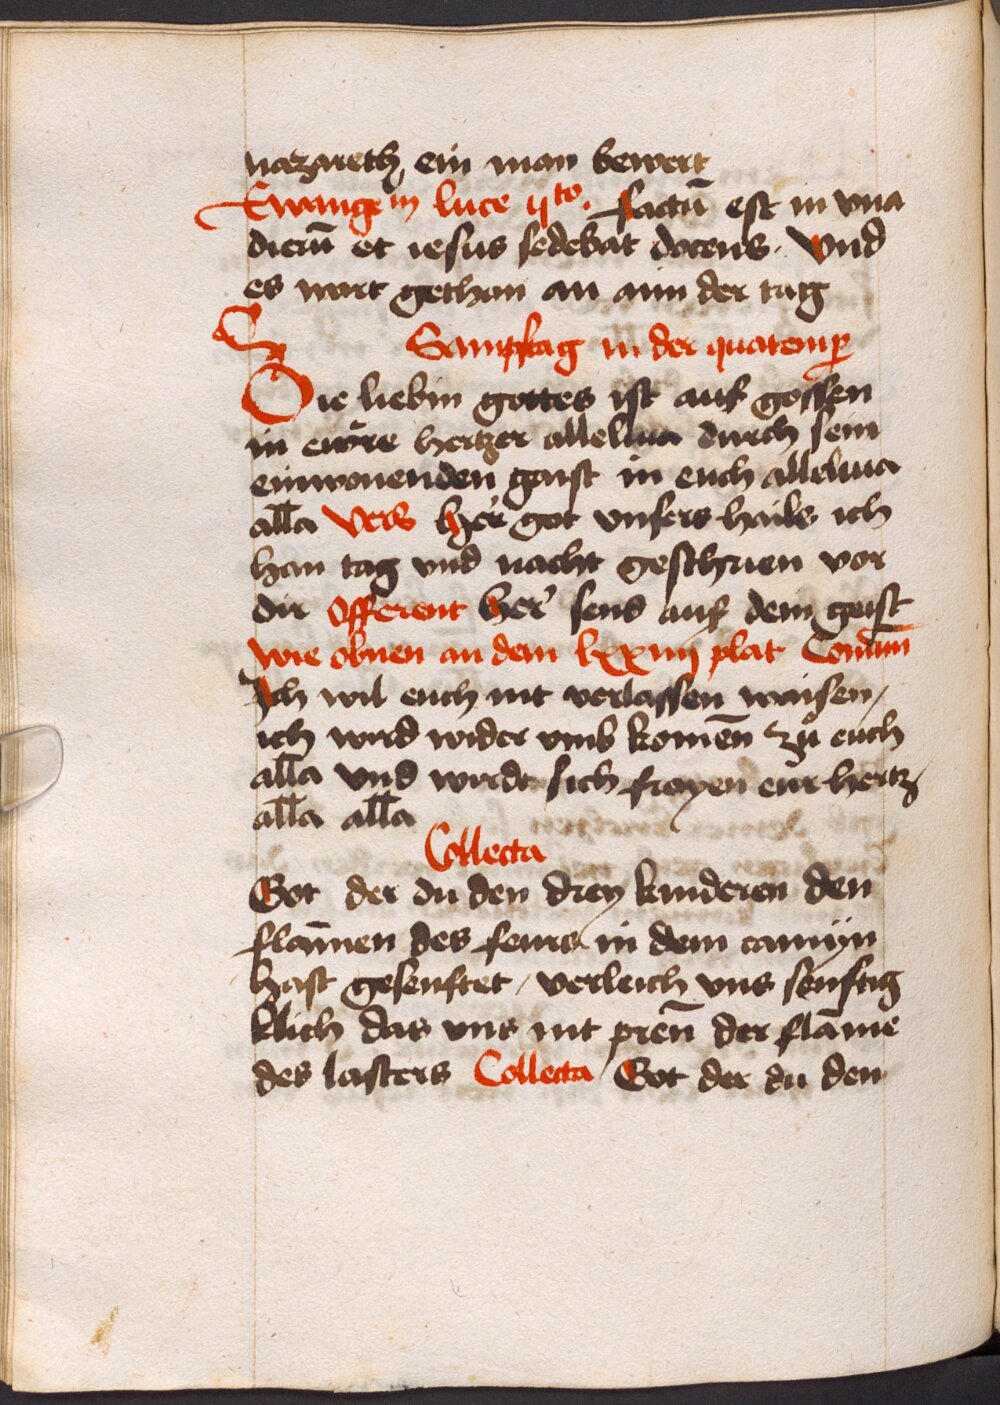 nazareth, ein man bewert
Ewange m luce qto. factū est in vna
dierū et iesus sedebat docens. vnd
es wart gethon an ainn der tag
Sampstag in der quatemp
Die liebin gottes ist auß gossen
in ewre hertzer alleluia durch sein
einwonenden gaist in euch alleluia
alla Vers her got vnsers hails ich
han tag vnd nacht geschrien vor
dir Offerent her sens auß dein geist
wie obnen an dem lxxiiij plat Comūn
Ich wil euch nit verlassen waisen,
ich wird wider vmb komen zů euch
alla vnd wirdt sich froyen eur hertz
alla alla
Collecta
Got der du den drey kinderen den
flāmen des feurs in dem camyn
hast gesenftet / verleich vns senftig
klich das vns nit pren der flāme
des lasters Collecta Got der du den